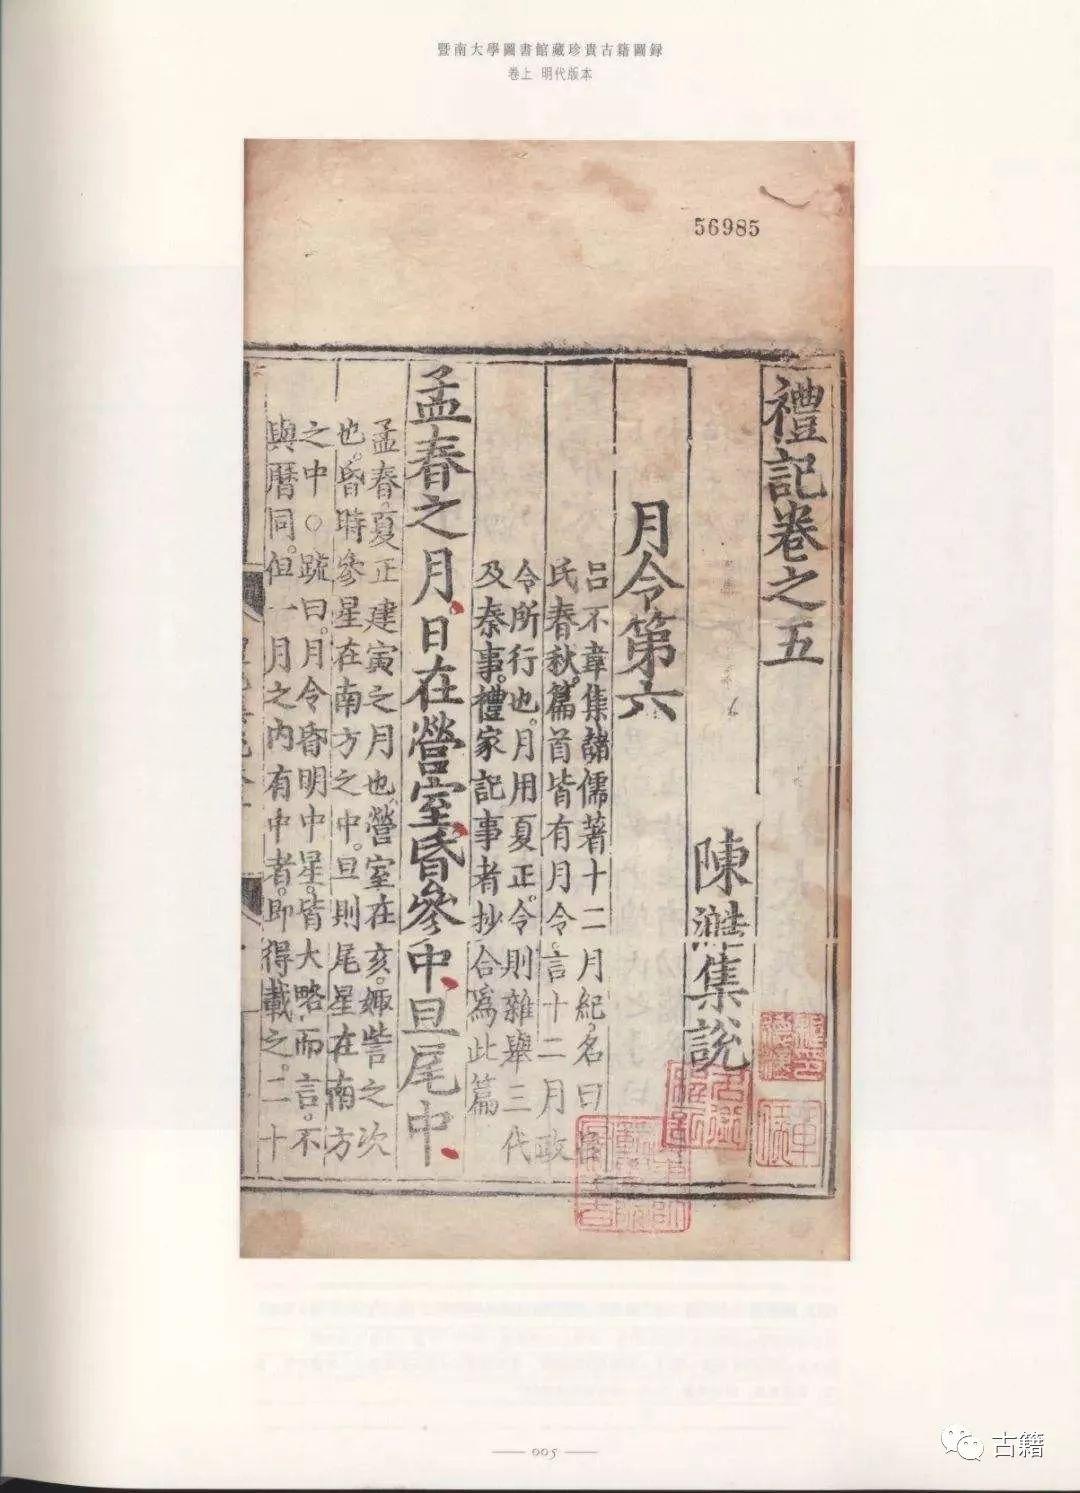 暨南大學圖書館藏珍貴古籍圖錄
卷上 明代版本
56985
禮記卷之五
陳澔集說
月令第六
呂不韋集諸儒著十二月紀名曰呂
氏春秋篇首皆有月令言十二月政
令所行也月用夏正令則雜舉三代
及秦事禮家記事者抄合為此篇
孟春之月日在營室昏參中旦尾中
孟春夏正建寅之月也營室在亥娵訾之次
也昏時參星在南方之中旦則尾星在南方
之中○疏曰月令昏明中星皆大略而言不
與曆同但一月之內有中者即得載之二十
005
古籍